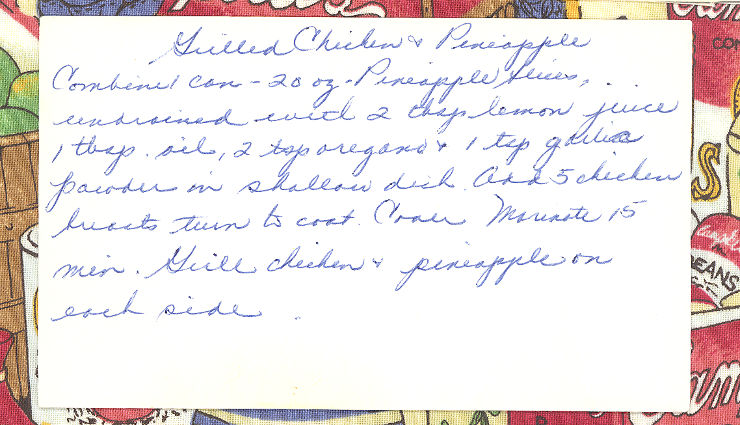 Grilled Chicken & Pineapple
Combine 1 can - 20 oz - Pineapple slices,
undrained with 2 tbsp lemon juice
1 tbsp. oil, 2 tsp oregano & 1 tsp garlic
powder in shallow dish. Add 5 chicken
breasts turn to coat. Cover Marinate 15
min. Grill chicken & pineapple on
each side.
CON
S
Campbell
BEANS